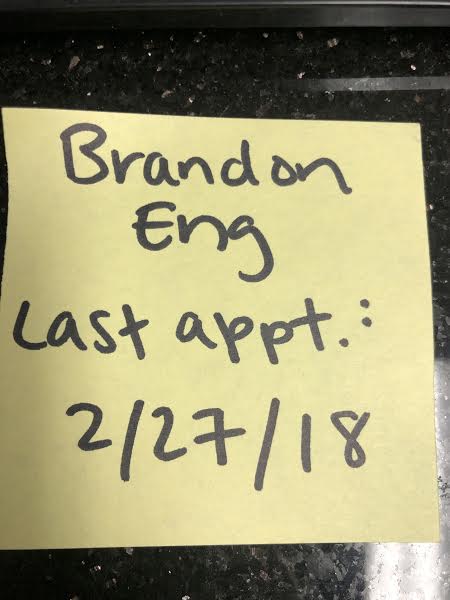 Brandon
Eng
Last appt.:
2/27/18